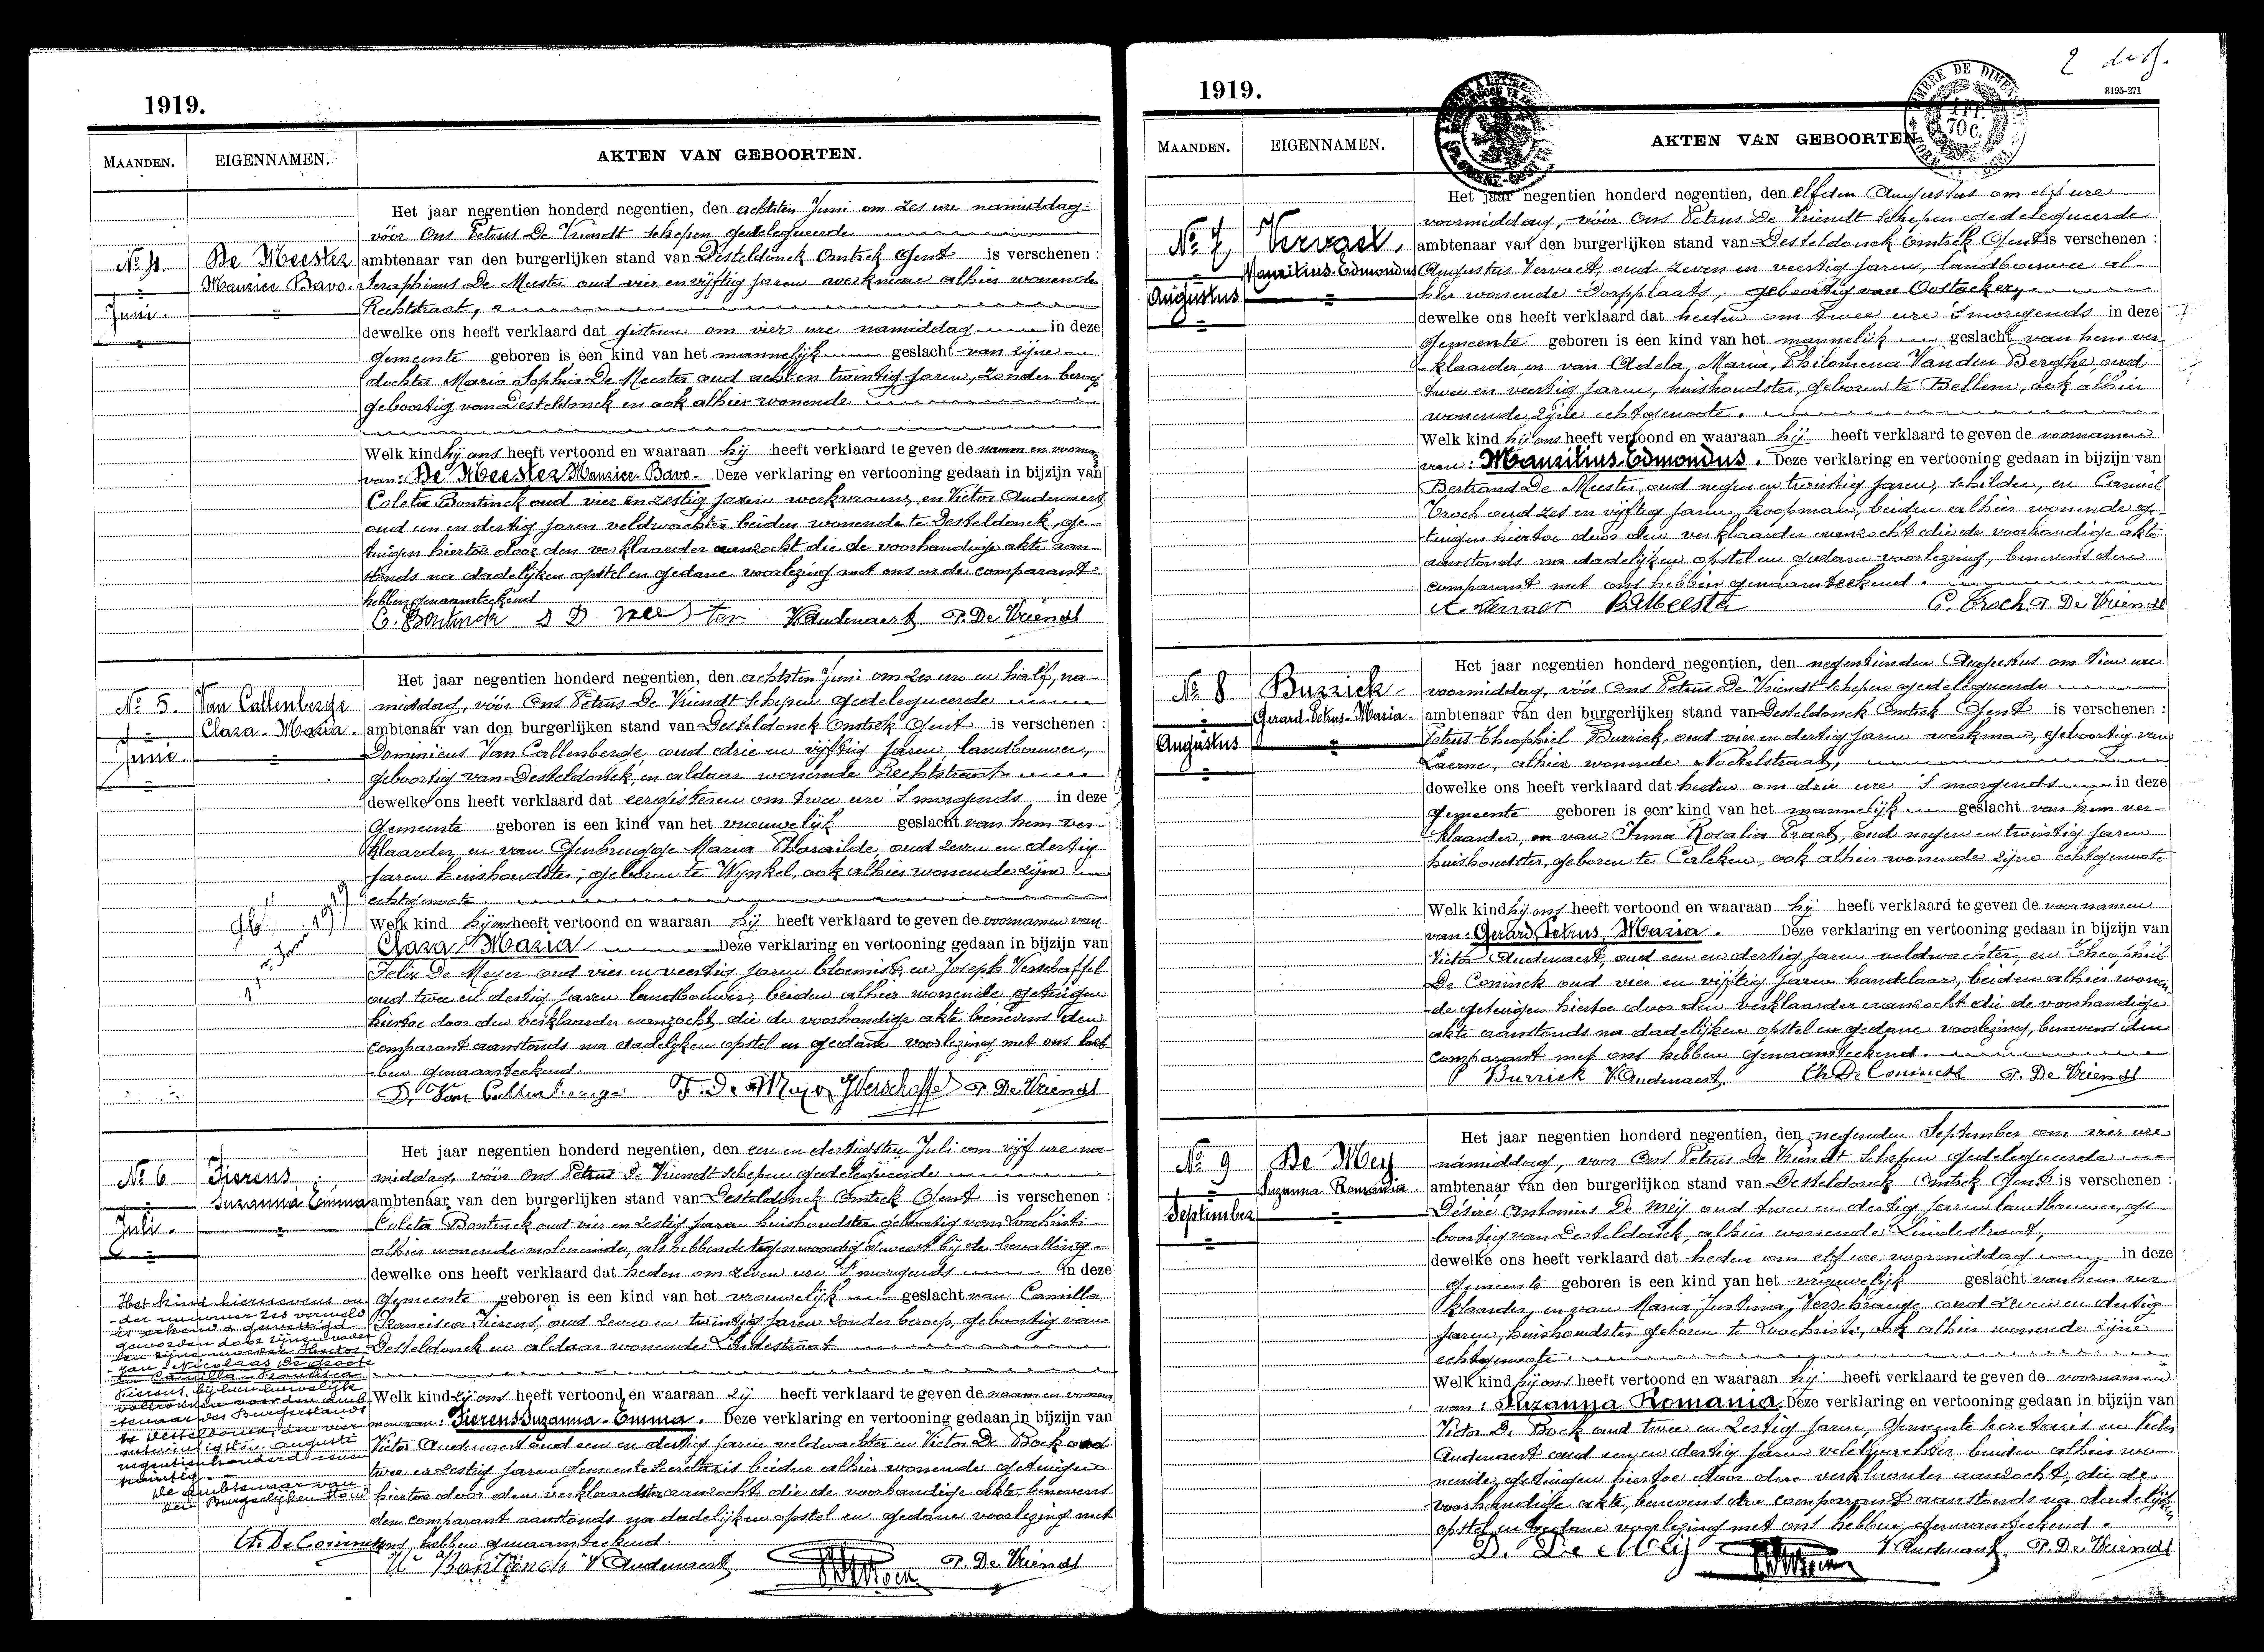 1919.
MAANDEN. EIGENNAMEN. AKTEN VAN GEBOORTEN.
Het jaar negentien honderd negentien, den achtsten Juni om zes ure namiddag
vóór Ons Petrus De Vriendt Schepen gedelegueerde
No 4. De Meester ambtenaar van den burgerlijken stand van Desteldonck Omtrek Gent is verschenen :
Maurice Bavo. Seraphinus De Meester oud vier en vijftig jaren werkman alhier wonende
Juni. Rechtstraat,
dewelke ons heeft verklaard dat gisteren om vier ure namiddag in deze
gemeente geboren is een kind van het mannelijk geslacht van zijne
dochter Maria Sophia De Meester oud acht en twintig jaren, zonder beroep
geboortig van Desteldonck en ook alhier wonende
Welk kind hij ons heeft vertoond en waaraan hij heeft verklaard te geven de naam en voornamen
van: De Meester Maurice Bavo. Deze verklaring en vertooning gedaan in bijzijn van
Coleta Bontinck oud vier en zestig jaren werkvrouw, en Victor Audenaert
oud een en dertig jaren veldwachter beiden wonende te Desteldonck, ge-
tuigen hiertoe door den verklaarder aanzocht die de voorhandige akte aan-
stonds na dadelijken opstel en gedane voorlezing met ons en de comparant
hebben genaamteekend
C. Bontinck S D Mees ter V Audenaert P. De Vriendt
Het jaar negentien honderd negentien, den achtsten Juni om zes ure en half, na-
No 5. Van Callenberge middag, vóór Ons Petrus De Vriendt Schepen gedelegueerde
Clara-Maria. ambtenaar van den burgerlijken stand van Desteldonck Omtrek Gent is verschenen :
Juni. Dominicus Van Callenberge oud drie en vijftig jaren landbouwer,
geboortig van Desteldonck en aldaar wonende Rechtstraat
dewelke ons heeft verklaard dat eergisteren om twee ure 's morgends in deze
gemeente geboren is een kind van het vrouwelijk geslacht van hem ver-
klaarder en van Genbrugge Maria Pharailde, oud zeven en dertig
jaren huishoudster, geboren te Wynkel, ook alhier wonende zijne
echtgenoote.
Welk kind hij ons heeft vertoond en waaraan hij heeft verklaard te geven de voornamen van
Clara Maria Deze verklaring en vertooning gedaan in bijzijn van
Felix De Meyer oud vier en veertig jaren bloemist, en Joseph Verschaffel
oud twee en dertig jaren landbouwer, beiden alhier wonende getuigen
hiertoe door den verklaarder aanzocht, die de voorhandige akte benevens den
comparant aanstonds na dadelijken opstel en gedane voorlezing met ons heb-
ben genaamteekend.
D. Van Callenberge F. De Meyer J Verschaffel P. De Vriendt
Het jaar negentien honderd negentien, den een en dertigsten Juli om vijf ure na-
No 6 Fierens middag, vóór Ons Petrus De Vriendt Schepen gedelegueerde
Suzanna Emma ambtenaar van den burgerlijken stand van Desteldonck Omtrek Gent is verschenen :
Juli. Coleta Bontinck oud vier en zestig jaren huishoudster geboortig van Loochristi
alhier wonende moleneinde, als hebbende tegenwoordig geweest bij de bevalling
dewelke ons heeft verklaard dat heden om zeven ure 's morgends in deze
gemeente geboren is een kind van het vrouwelijk geslacht van Camilla
Francisca Fierens, oud zeven en twintig jaren zonder beroep, geboortig van
Desteldonck en aldaar wonende Lindestraat
Welk kind zij ons heeft vertoond en waaraan zij heeft verklaard te geven de naam en voorna-
men van: Fierens Suzanna-Emma. Deze verklaring en vertooning gedaan in bijzijn van
Victor Audenaert oud een en dertig jaren veldwachter en Victor De Bock oud
twee en zestig jaren Gemeente Secretaris beiden alhier wonende getuigen
hiertoe door den verklaardster aanzocht die de voorhandige akte, benevens
den comparant aanstonds na dadelijken opstel en gedane voorlezing met
ons hebben genaamteekend.
Bontinck V Audenaert P. De Vriendt
Het kind hiernevens on-
der nummer zes vermeld
is erkend & gewettigd
geworden door zijnen vader
en zijne moeder Hector
Jan Nicolaas De Groote
en Camilla Francisca
Fierens, bij hun huwelijk
voltrokken voor den amb-
tenaar des Burgerstands
te Desteldonck, den vier
en twintigsten Augusti
negentienhonderd een en
twintig.
De ambtenaar van
den Burgerlijken Stand
Th. De Coninck
1919.
2 de bl.
3195-271
MAANDEN. EIGENNAMEN. AKTEN VAN GEBOORTEN.
Het jaar negentien honderd negentien, den elfden Augustus om elf ure
voormiddag, vóór Ons Petrus De Vriendt Schepen gedelegueerde
No 7, Vervaet, ambtenaar van den burgerlijken stand van Desteldonck Omtrek Gent is verschenen :
Maurilius-Edmondus Augustus Vervaet, oud zeven en veertig jaren, landbouwer al-
Augustus hier wonende Dorpplaats, geboortig van Oostackker,
dewelke ons heeft verklaard dat heden om twee ure 's morgends in deze
gemeente geboren is een kind van het mannelijk geslacht van hem ver-
klaarder en van Adela, Maria, Philomena Vanden Berghe, oud
twee en veertig jaren, huishoudster, geboren te Bellem, ook alhier
wonende zijne echtgenoote.
Welk kind hij ons heeft vertoond en waaraan hij heeft verklaard te geven de voornamen
van: Maurilius Edmondus. Deze verklaring en vertooning gedaan in bijzijn van
Bertrand De Meester, oud negen en twintig jaren, schilder, en Camiel
Croch oud zes en vijftig jaren, koopman, beiden alhier wonende ge-
tuigen hiertoe door den verklaarder aanzocht die de voorhandige akte
aanstonds na dadelijken opstel en gedane voorlezing, benevens den
comparant met ons hebben genaamteekend.
A. Vervaet B. Meester C. Croch P. De Vriendt
Het jaar negentien honderd negentien, den negentienden Augustus om tien ure
No 8 Burrick voormiddag, vóór Ons Petrus De Vriendt Schepen gedelegueerde
Gerard-Petrus-Maria. ambtenaar van den burgerlijken stand van Desteldonck Omtrek Gent is verschenen :
Augustus Petrus Theophiel Burrick, oud vier en dertig jaren werkman, geboortig van
Laerne, alhier wonende Nockelstraat,
dewelke ons heeft verklaard dat heden om drie ure 's morgends in deze
gemeente geboren is een kind van het mannelijk geslacht van hem ver-
klaarder, en van Irma Rosalia Praet, oud negen en twintig jaren
huishoudster, geboren te Calcken, ook alhier wonende zijne echtgenoote
Welk kind hij ons heeft vertoond en waaraan hij heeft verklaard te geven de voornamen
van: Gerard, Petrus, Maria. Deze verklaring en vertooning gedaan in bijzijn van
Victor Audenaert, oud een en dertig jaren veldwachter, en Theophiel
De Coninck oud vier en vijftig jaren handelaar, beiden alhier wonen-
de getuigen hiertoe door den verklaarder aanzocht die de voorhandige
akte aanstonds na dadelijken opstel en gedane voorlezing, benevens den
comparant met ons hebben genaamteekend.
P Burrick V Audenaert Th De Coninck P. De Vriendt
Het jaar negentien honderd negentien, den negenden September om vier ure
No 9 De Mey namiddag, voor Ons Petrus De Vriendt Schepen gedelegueerde
Suzanna Romania. ambtenaar van den burgerlijken stand van Desteldonck Omtrek Gent is verschenen :
September Désiré Antonius De Meij oud twee en dertig jaren landbouwer, ge-
boortig van Desteldonck, alhier wonende Lindestraat,
dewelke ons heeft verklaard dat heden om elf ure voormiddag in deze
gemeente geboren is een kind van het vrouwelijk geslacht van hem ver-
klaarder, en van Maria Justina, Verschraege oud zeven en dertig
jaren, huishoudster geboren te Loochristi, ook alhier wonende zijne
echtgenoote.
Welk kind hij ons heeft vertoond en waaraan hij heeft verklaard te geven de voornamen
van: Suzanna Romania. Deze verklaring en vertooning gedaan in bijzijn van
Victor De Bock oud twee en zestig jaren, Gemeente Secretaris en Victor
Audenaert oud een en dertig jaren veldwachter beiden alhier wo-
nende, getuigen hiertoe door den verklaarder aanzocht, die de
voorhandige akte, benevens den comparant aanstonds na dadelijken
opstel en gedane voorlezing met ons hebben genaamteekend.
D. De Meij V Audenaert. P. De Vriendt